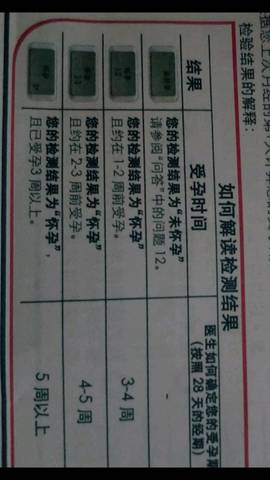 据您上次月经的第
检验结果的解释:
如何解读检测结果
结果
受孕时间
医生如何确定您的受孕期
(按照 28 天的经期)
您的检测结果为“未怀孕”
请参阅“问答”中的问题 12。
-
您的检测结果为“怀孕”
且约在 1-2 周前受孕。
3-4 周
您的检测结果为“怀孕”
且约在 2-3 周前受孕。
4-5 周
您的检测结果为“怀孕”,
且已受孕3 周以上。
5 周以上